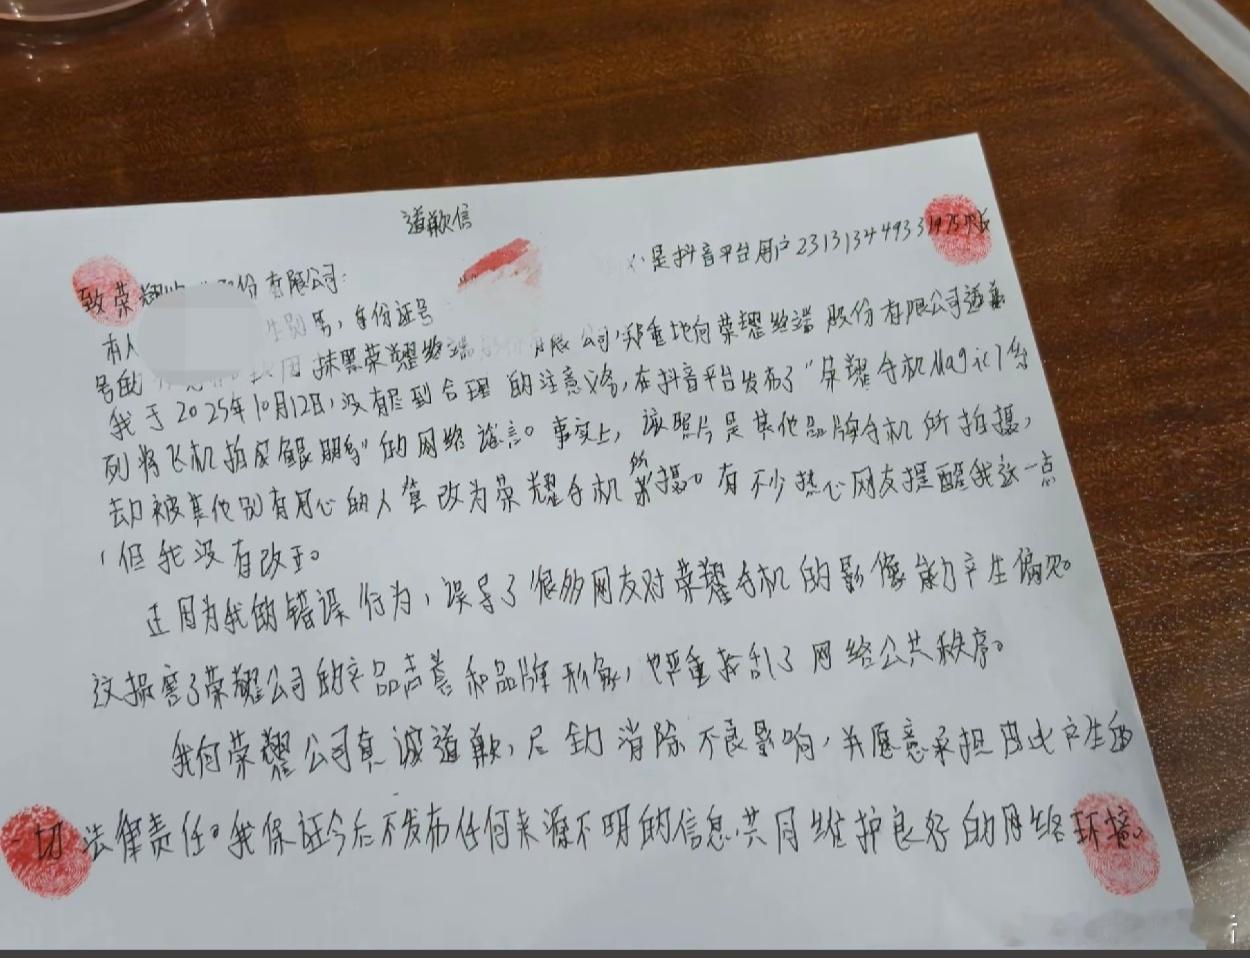 道歉信
致荣耀 股份有限公司:
是抖音平台用户2313134493319751账
本人 性别男,身份证号
号的 抹黑荣耀终端 有限公司,郑重地向荣耀终端股份有限公司道歉
我于2025年10月12日,没有尽到合理的注意义务,在抖音平台发布了“荣耀手机Magic7系
列将飞机拍成鲲鹏”的网络谣言。事实上,该照片是其他品牌手机所拍摄,
却被其他别有用心的人篡改为荣耀手机所摄。有不少热心网友提醒我这一点
,但我没有改正。
正因为我的错误行为,误导了很多网友对荣耀手机的影像能力产生偏见。
这损害了荣耀公司的产品声誉和品牌形象,也严重扰乱了网络公共秩序。
我向荣耀公司真诚道歉,尽力消除不良影响,并愿意承担因此产生的
一切法律责任。我保证今后不发布任何来源不明的信息,共同维护良好的网络环境。